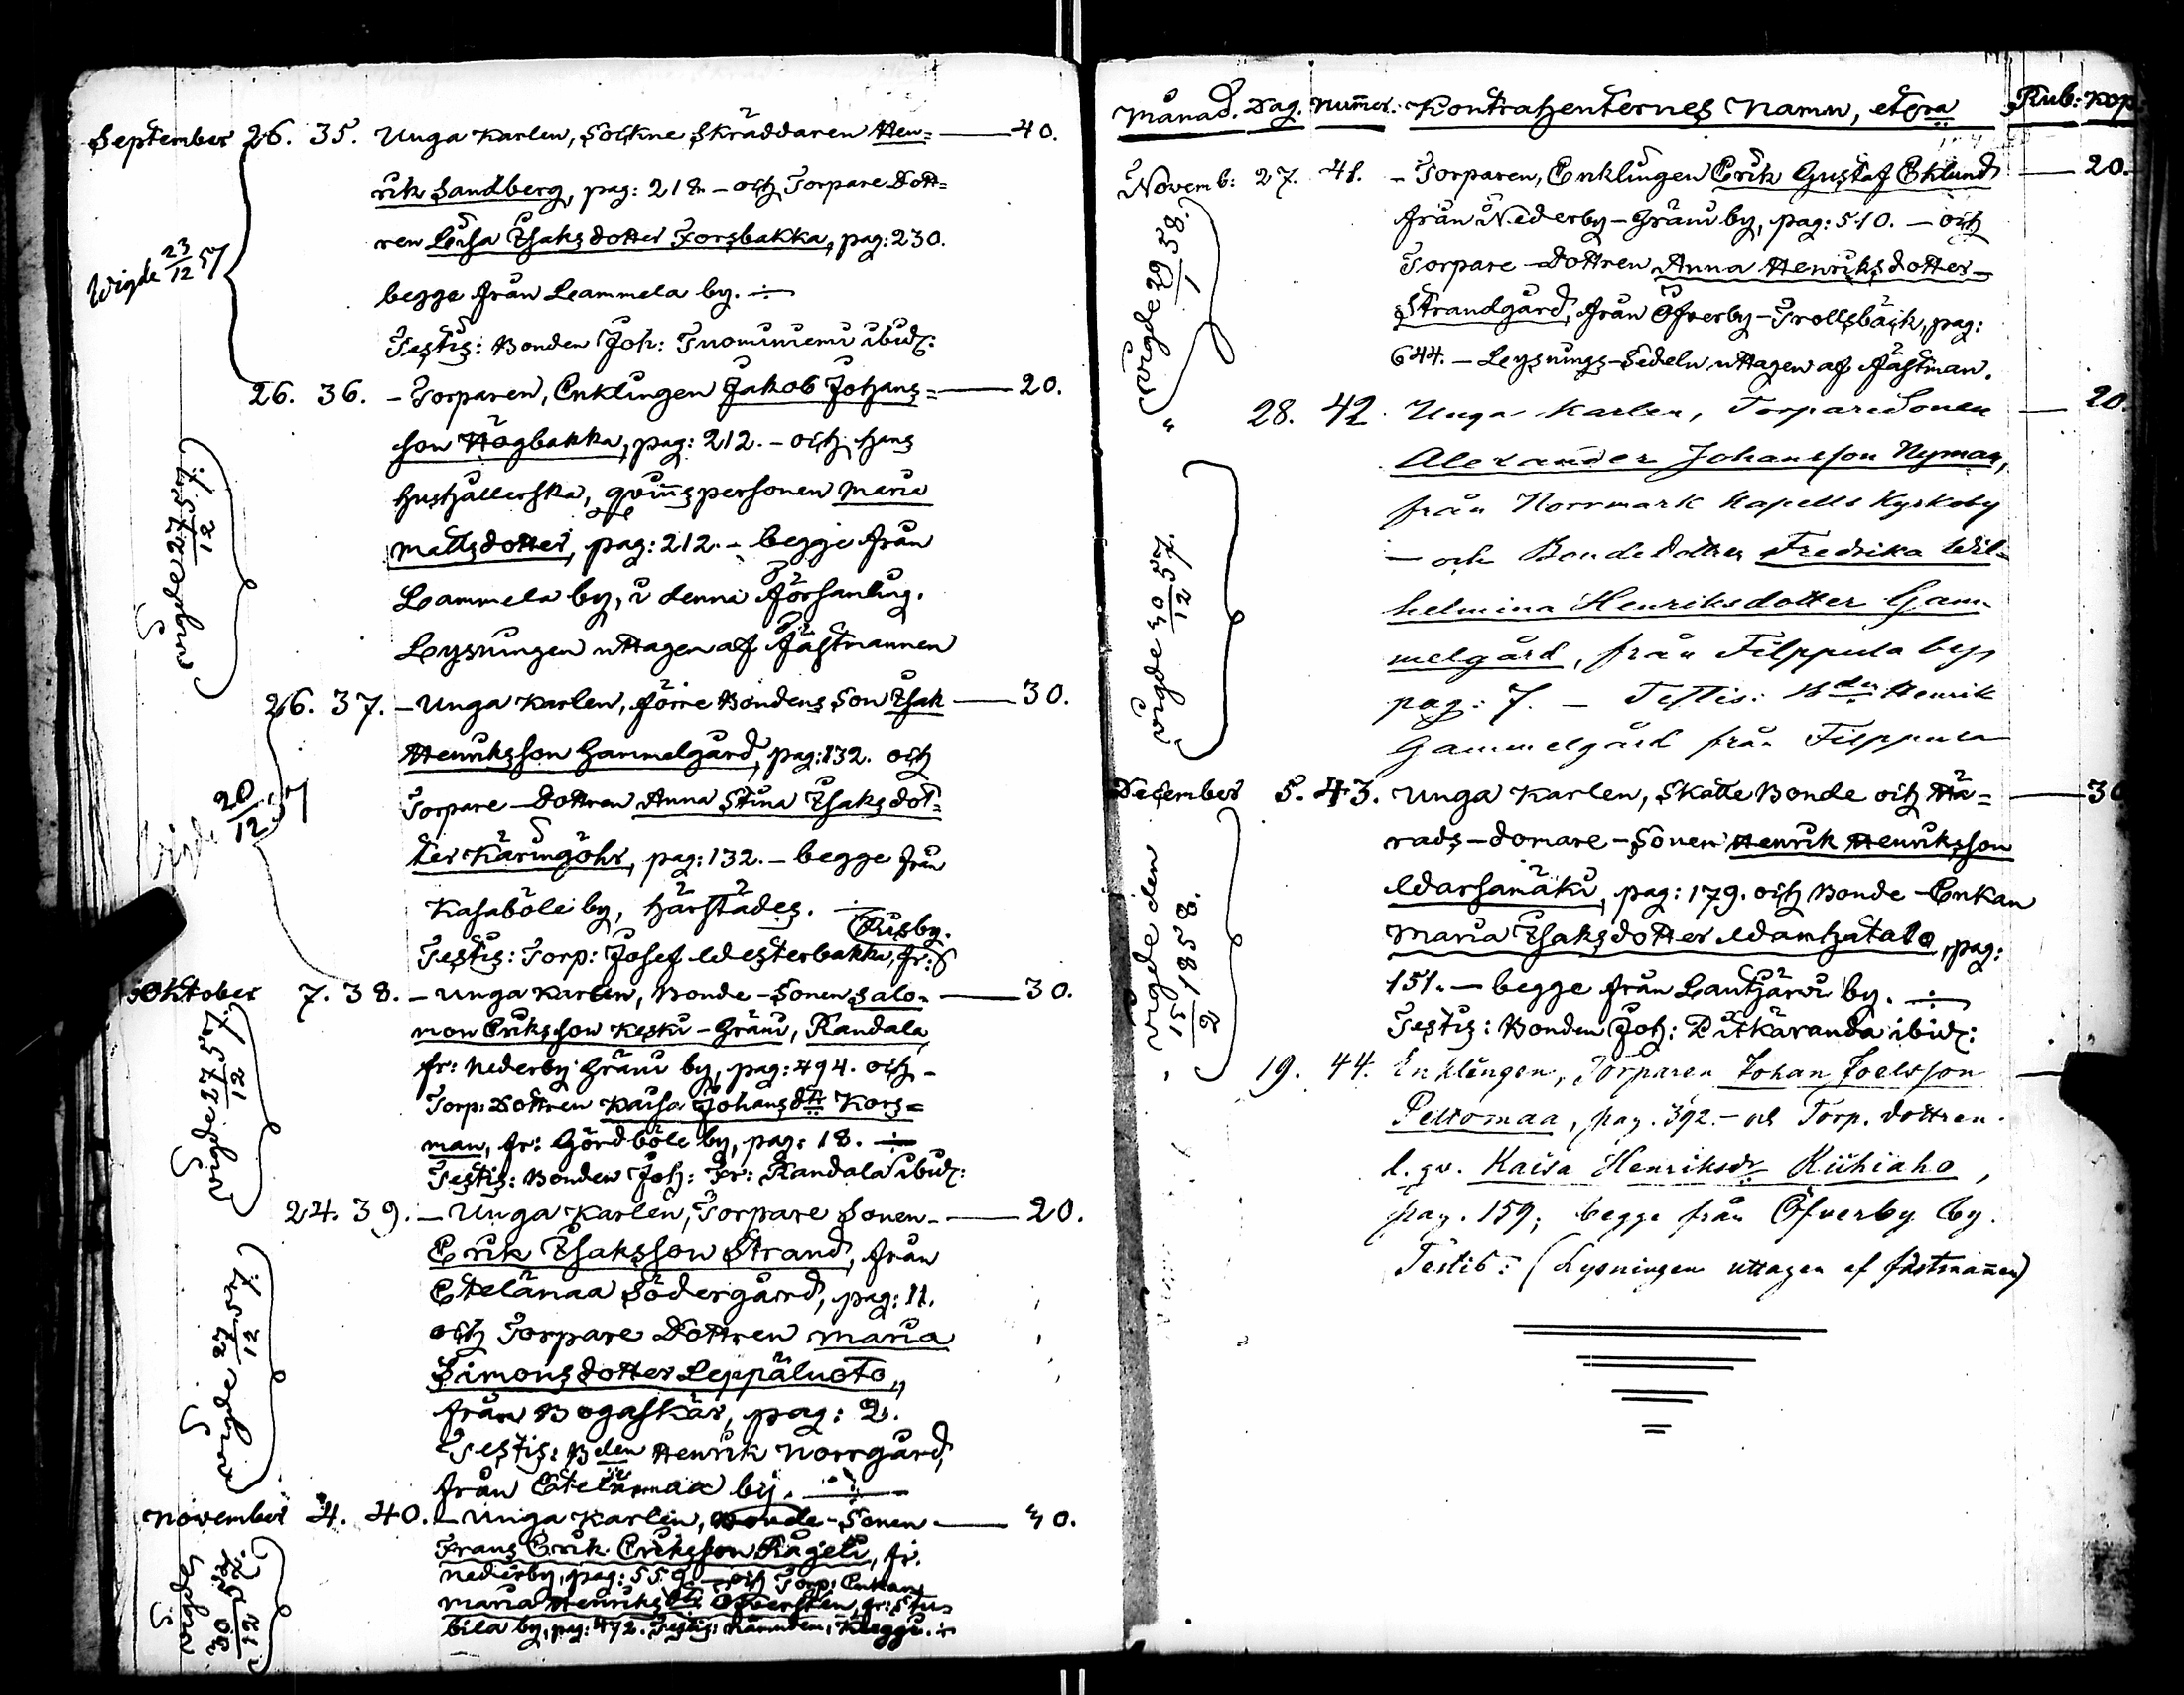 September 26. 35. Unga Karlen, Sockne Skräddaren Hen= — 40.
rik Sandberg, pag: 218 – och Torpare Dott=
ren Lisa Isaksdotter Forsbakka, pag: 230.
begge från Lammela by. ÷
Wigde 23/12 57
Testis: Bonden Joh: Tuominiemi ibid:
26. 36. – Torparen, Enklingen Jakob Johans= — 20.
son Högbakka, pag: 212. – och hans
hushållerska, qvinspersonen Maria
Mattsdotter, pag: 212. – begge från
Lammela by, i denna församling.
Lysningen uttagen af Fästmannen
wigde 27/12 57
26. 37. – Unga Karlen, förre Bondens Son Isak — 30.
Henriksson Gammelgård, pag: 132. och
Torpare – Dottren Anna Stina Isaksdot=
ter Käringöhr, pag: 132. – begge från
Kasaböle by, härstädes. ÷
Wigde 20/12 57
Testis: Torp: Josef Westerbakka, fr: Risby.
Oktober 7. 38. – Unga Karlen, Bonde – Sonen Salo= — 30.
mon Eriksson Keski – Gräni, Randala
fr: Nederby Gräni by, pag: 494. och –
Torp: Dottren Kaisa Johansdtr Kors=
man, fr: Gördböle by, pag: 18. ÷
Testis: Bonden Joh: Fr: Randala ibid:
wigde 27/12 57
24. 39. – Unga Karlen, Torpare Sonen – — 20.
Erik Isaksson Strand, från
Etelänaa Södergård, pag: 11.
och Torpare Dottren Maria
Simonsdotter Leppäluoto,
från Bogaskär, pag: 2.
Testis: Bden Henrik Norrgård,
från by. ÷
wigde 27/12 57
November 4. 40. – Unga Karlen, Bonde – Sonen — 30.
Frans Erik Eriksson Rägeli, fr.
Nederby, pag: 559. – och Torp: Enkan
Maria Henriksdtr Öfversten, fr:
bila by, pag: 492. Testis: Nämndem:
wigde 30/12
Månad. Dag. Numer. Kontrahenternes Namn, etcra Rub: Kop:
Novemb: 27. 41. – Torparen, Enklingen Erik Gustaf Eklund — 20.
från Nederby – Gräni by, pag: 510. – och
Torpare – Dottren Anna Henriksdotter –
Strandgård, från Öfverby – Trollsbäck, pag:
644. – Lysnings – Sedeln uttagen af Fästman.
wigde 29/1 58.
" 28. 42. Unga Karlen, Torpare Sonen — 20.
Alexander Johansson Nyman,
från Norrmark Kapells Kyrkoby
– och Bondedotter Fredrika Wil=
helmina Henriksdotter Gam=
melgård, från Filppula by,
pag: 7. – Testis: Bden Henrik
Gammelgård från Filppula
wigde 30/12 57.
December 5. 43. Unga Karlen, Skatte Bonde och Hä= — 30
rads – domare – Sonen Henrik Henriksson
Warsamäki, pag: 179. och Bonde – Enkan
Maria Isaksdotter Wanhatalo, pag:
151. – begge från Lautjärvi by. ÷
Testis: Bonden Joh: Pitkäranda ibid:
wigde den 15/2 1858.
19. 44. Enklingen, Torparen Johan Joelsson —
Peltomaa, pag. 392. – och Torp. dottren.
l. qv. Kaisa Henriksdr Riihiaho,
pag. 159, begge från Öfverby by.
Testis: (Lysningen uttagen af fästmannen)